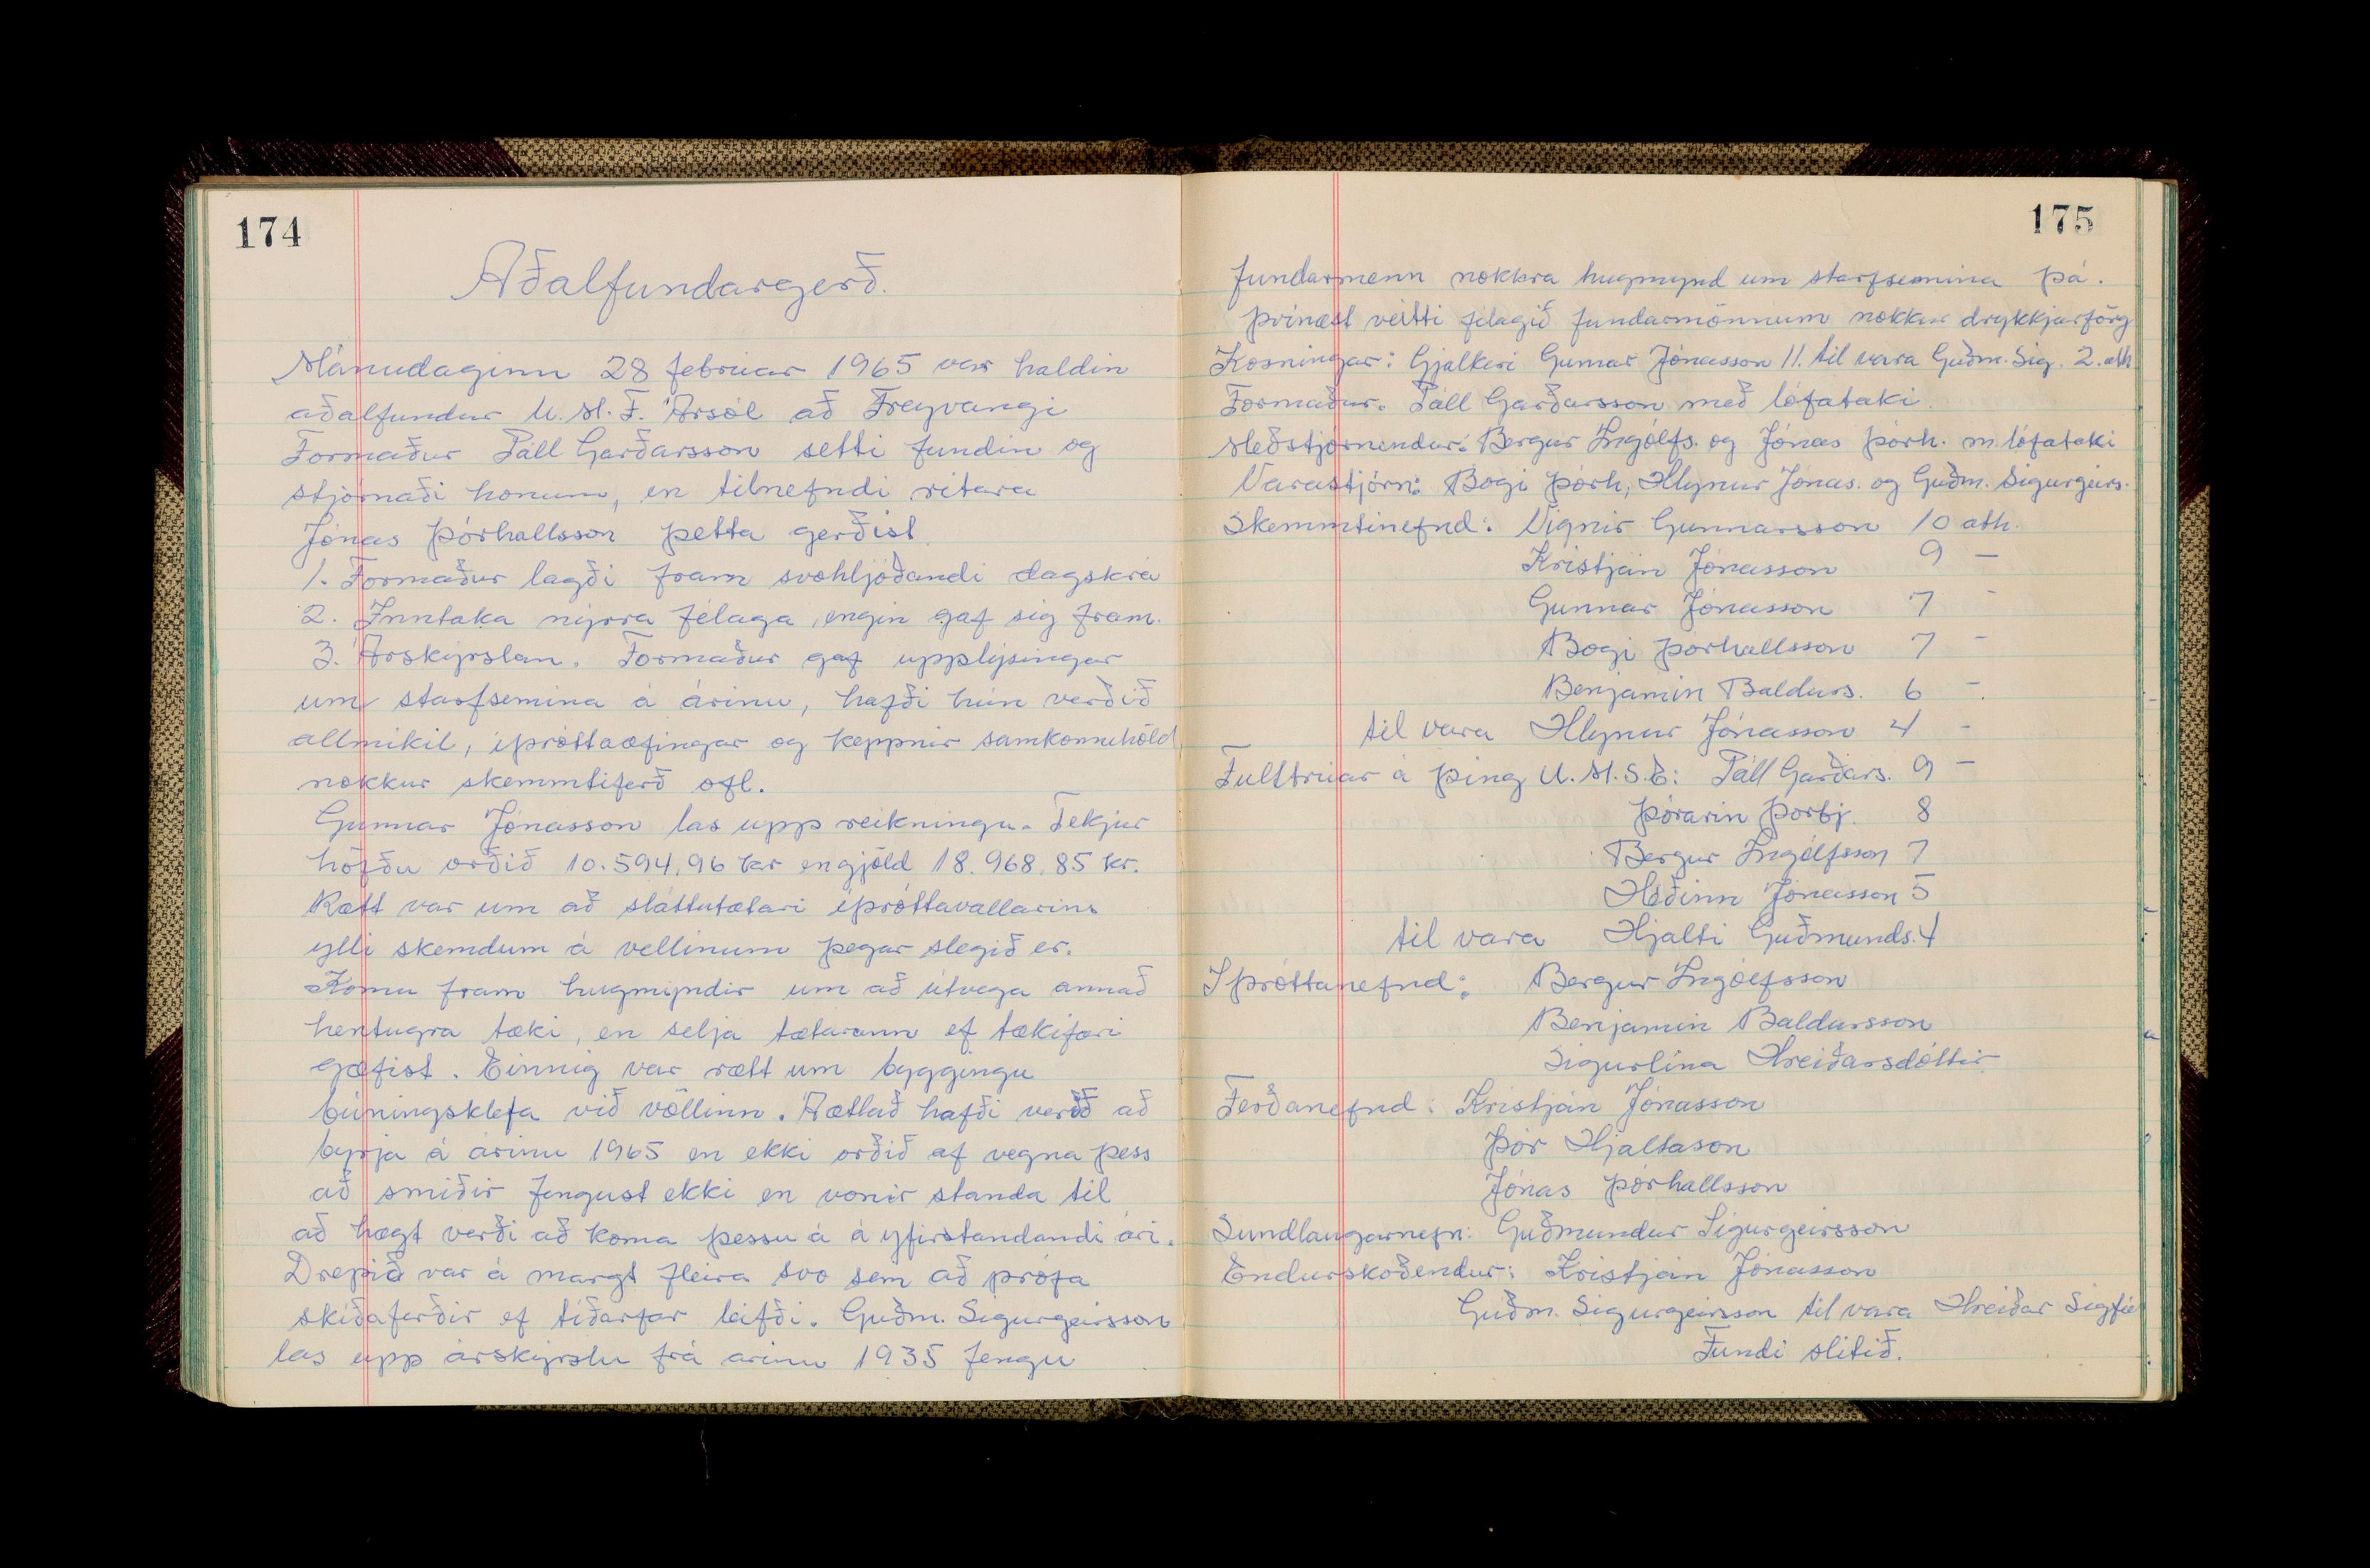 174
Aðalfundargerð.
Mánudaginn 28 febrúar 1965 var haldin
aðalfundur U. M. F. Ársól að Freyvangi
Formaður Páll Garðarsson setti fundin og
stjórnaði honum, en tilnefndi ritara
Jónas Þórhallsson þetta gerðist.
1. Formaður lagði fram svohljóðandi dagskrá
2. Inntaka nýrra félaga, engin gaf sig fram.
3. Árskýrslan. Formaður gaf upplýsingar
um starfsemina á árinu, hafði hún verðið
allmikil, íþróttaæfingar og keppnir samkomuhöld
nokkur skemmtiferð ofl.
Gunnar Jónasson las upp reikninga. Tekjur
höfðu orðið 10.594,96 kr en gjöld 18.968,85 kr.
Rætt var um að sláttutætari íþróttavallarins
ylli skemdum á vellinum þegar slegið er.
Komu fram hugmyndir um að útvega annað
hentugra tæki, en selja tætarann ef tækifæri
gæfist. Einnig var rætt um byggingu
búningsklefa við völlinn. Áætlað hafði verið að
byrja á árinu 1965 en ekki orðið af vegna þess
að smiðir fengust ekki en vonir standa til
að hægt verði að koma þessu á á yfirstandandi ári.
Drepið var á margt fleira svo sem að prófa
skíðaferðir ef tíðarfar leifði. Guðm. Sigurgeirsson
las upp árskýrslu frá árinu 1935 fengu
175
fundarmenn nokkra hugmynd um starfsemina þá.
Þvínæst veitti félagið fundarmönnum nokkur drykkjarföng
Kosningar: Gjalkeri Gunnar Jónasson 11. til vara Guðm. Sig. 2. atk
Formaður. Páll Garðarsson með lófataki.
Meðstjórnendur: Bergur Ingólfs. og Jónas Þórh. m. lófataki
Varastjórn: Bogi Þórh, Hlynur Jónas. og Guðm. Sigurgeirs.
Skemmtinefnd: Vignir Gunnarsson 10 atk.
Kristján Jónasson 9 -
Gunnar Jónasson 7 -
Bogi Þórhallsson 7 -
Benjamín Baldurs. 6 -.
til vara Hlynur Jónasson 4 -
Fulltrúar á þing U. M. S. E: Páll Garðars. 9 -
Þórarin Þorbj. 8
Bergur Ingólfsson 7
Héðinn Jónasson 5
til vara Hjalti Guðmunds. 4
Íþróttanefnd: Bergur Ingólfsson
Benjamín Baldursson
Sigurlína Hreiðarsdóttir
Ferðanefnd: Kristján Jónasson
Þór Hjaltason
Jónas Þórhallsson
Sundlaugarnefn: Guðmundur Sigurgeirsson
Endurskoðendur: Kristján Jónasson
Guðm. Sigurgeirsson til vara Hreiðar Sigfú
Fundi slitið.